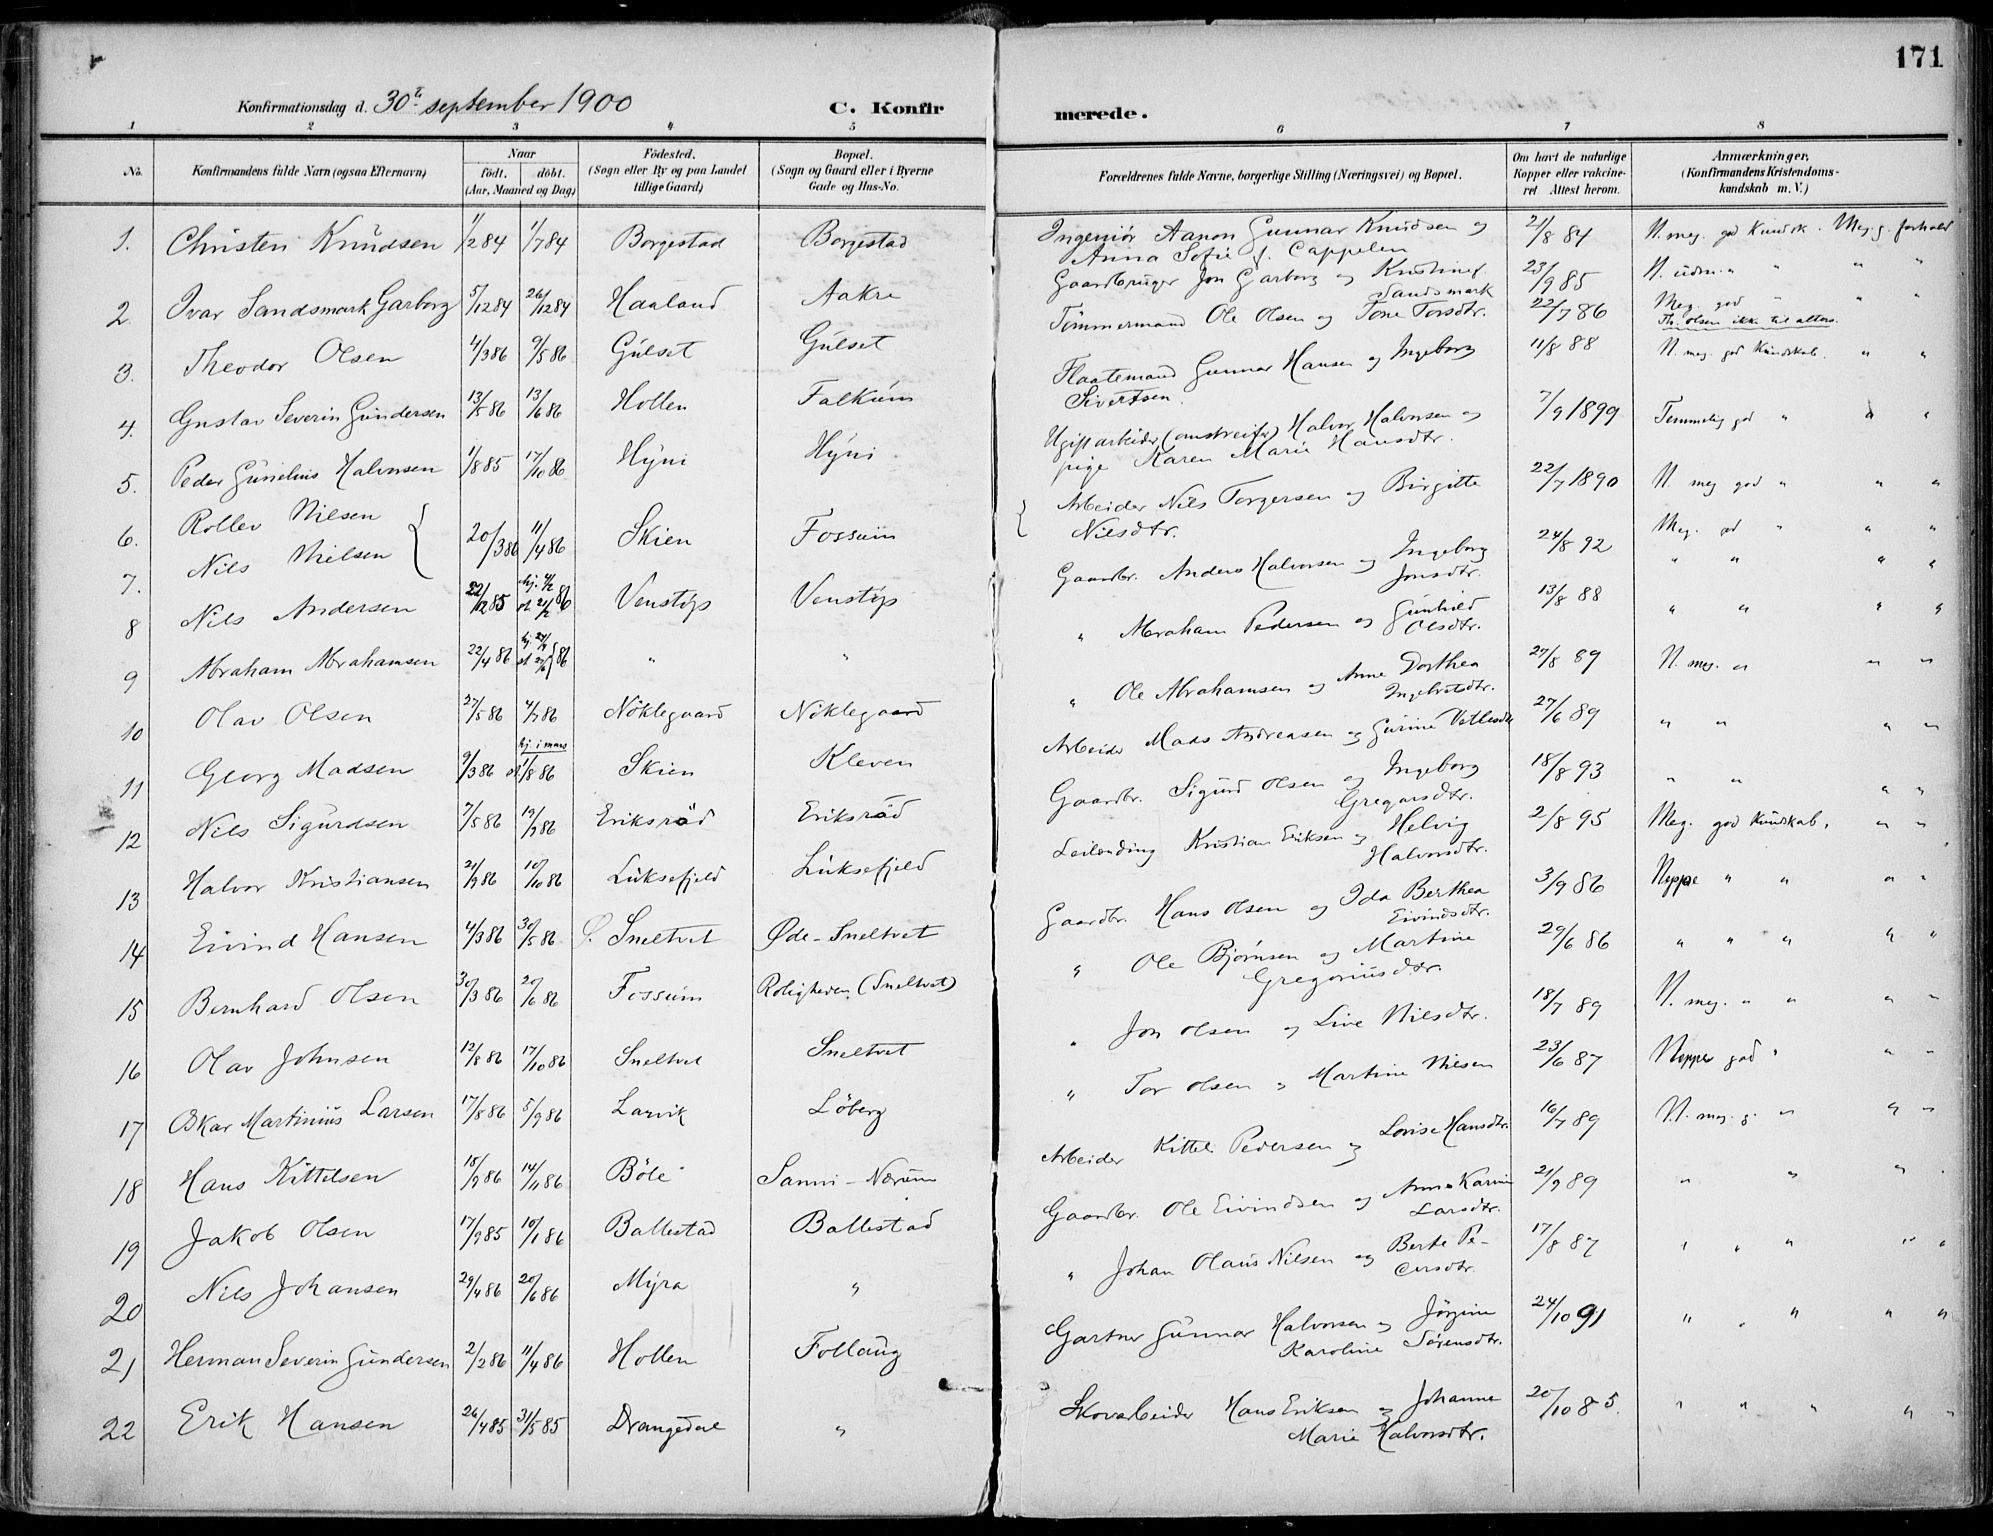 171
Konfirmationsdag d. 30te september 1900
C. Konfirmerede.
1 2 3 4 5 6 7 8
No. Konfirmandens fulde Navn (ogsaa Efternavn) Naar født. døbt. (Aar, Maaned og Dag) Fødested. (Sogn eller By og paa Landet tillige Gaard) Bopæl. (Sogn og Gaard eller i Byerne Gade og Hus-No. Forældrenes fulde Navne, borgerlige Stilling (Næringsvei) og Bopæl. Om havt de naturlige Kopper eller vaccineret Attest herom. Anmærkninger, (Konfirmandens Kristendomskundskab m. V.)
1. Christen Knudsen 1/2 84 1/7 84 Borgestad Borgestad Ingeniör Aanon Gunnar Knudsen og Anna Sofie f. Cappelen 21/8 84 N. meg. god Kundsk. Meg. g. forhold
2. Ivar Sandsmark Garborg 5/12 84 26/12 84 Haaland Aakre Gaardbruger Jon Garborg og Kristine f. Sandsmark 23/9 85 N. udm. " " " "
3. Theodor Olsen 4/3 86 9/5 86 Gulset Gulset Tömmermand Ole Olsen og Tone Torsdtr. 22/7 86 Meg. god " " " Th. Olsen ikke til alters.
4. Gustav Severin Gundersen 13/5 86 13/6 86 Hollen Falkum Flaatemand Gunnar Hansen og Ingeborg Sivertsen. 11/8 88 N. meg. god Kundskab. " "
5. Peder Gunelius Halvorsen 1/8 85 17/10 86 Hyni Hyni Ugift arbeider (omstreifer) Halvor Halvorsen og pige Karen Marie Hansdtr. 7/9 1899 Temmelig god " " "
6. Rollev Nilsen
7. Nils Nielsen 20/3 86 11/4 86 Skien Fossum Arbeider Nils Torgersen og Birgitte Nilsdtr. 22/7 1890 N. meg god " " "
8 Nils Andersen 22/12 85 hj. 4/2 st. 21/2 86 Venstöp Venstöp Gaardbr. Anders Halvorsen og Ingeborg Jonsdtr. 24/8 92 Meg. gd " " "
9 Abraham Abrahamsen 22/4 86 86 " " " Abraham Pedersen og Gunhild Olsdtr. 13/8 88 " " " "
10 Olav Olsen 27/5 86 4/7 86 Nöklegaard Nöklegaard " Ole Abrahamsen og Anne Dorthea Ingebretsdtr. 27/8 89 N. meg. " " "
11 Georg Madsen 9/3 86 hj. i mars st 1/8 86 Skien Kleven Arbeider Mads Andreasen og Gurine Vetlesdtr 27/6 89 " " " "
12 Nils Sigurdsen 7/5 86 19/9 86 Eriksröd Eriksröd Gaardbr. Sigurd Olsen og Ingeborg Gregarsdtr. 18/8 93 " " " "
13 Halvor Kristiansen 21/9 86 10/10 86 Luksefjeld Luksefjeld Leilending Kristian Eriksen og Helvig Halvorsdtr. 2/8 95 Meg. god Kundskab. " "
14 Eivind Hansen 4/3 86 30/5 86 Ø. Sneltvet Øde-Sneltvet Gaardbr. Hans Olsen og Ida Berthea Eivindsdtr. 3/9 86 Neppe " " " "
15 Bernhard Olsen 30/3 86 27/6 86 Fossum Roligheden (Sneltvet) " Ole Bjørnsen og Martine Gregoriusdtr. 29/6 86 " " " " "
16 Olav Johnsen 12/8 86 17/10 86 Sneltvet Sneltvet " Jon Olsen og Live Nilsdtr. 18/7 89 N. meg. " " " "
17 Oskar Martinius Larsen 17/8 86 5/9 86 Larvik Löberg " Tor Olsen " Martine Nilsen 23/6 87 Neppe god " " "
18 Hans Kittilsen 18/9 86 14/11 86 Böle Sanni-Nærum Arbeider Kittel Pedersen og Lovise Hansdtr. 16/7 89 N. meg. g. " " "
19 Jakob Olsen 17/9 85 10/1 86 Ballestad Ballestad Gaardbr. Ole Eivindsen og Anne Karine Larsdtr. 21/9 89 " " "
20 Nils Johansen 29/4 86 20/6 86 Myra " " Johan Olaus Nilsen og Berte Pedersdtr. 17/8 87 " " " " "
21 Herman Severin Gundersen 2/2 86 11/4 86 Hollen Follaug Gartner Gunnar Halvorsen og Jörgine Karoline Sörensdtr. 24/10 91 " " " " "
22 Erik Hansen 26/4 85 31/5 85 Drangedal " Skovarbeider Hans Eriksen og Johanne Marie Halvorsdtr. 20/10 85. " " " " "